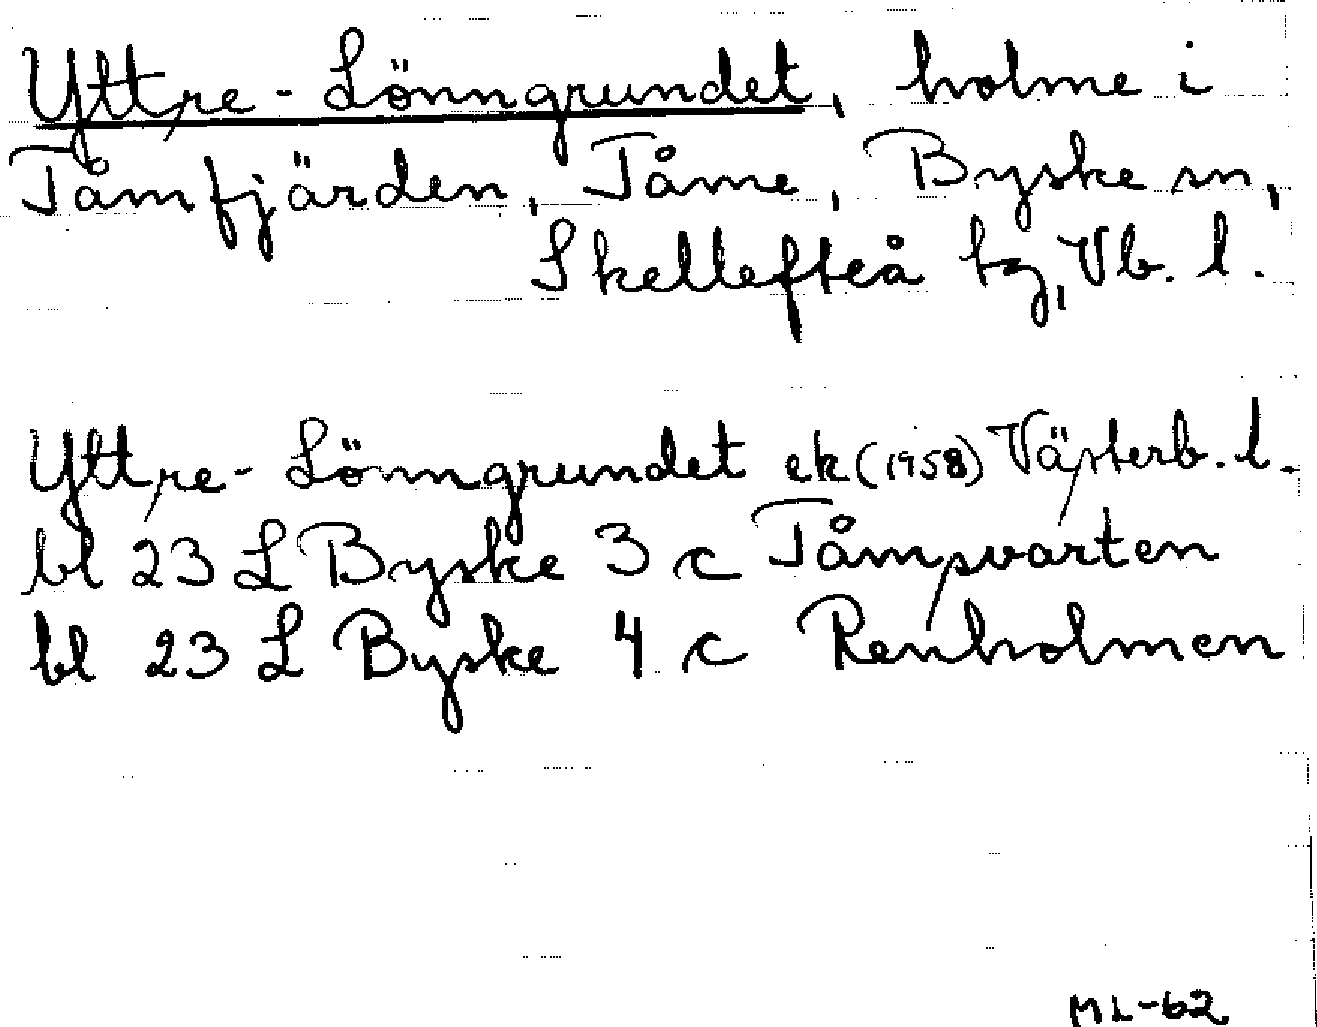 Yttre-Lönngrundet, holme i
Tåmfjärden, Tåme, Byske sn,
Skellefteå tg, Vb. l.
Yttre-Lönngrundet ek (1958) Västerb. l.
bl 23 L Byske 3 c Tåmsvarten
bl 23 L Byske 4 c Renholmen
ML-62